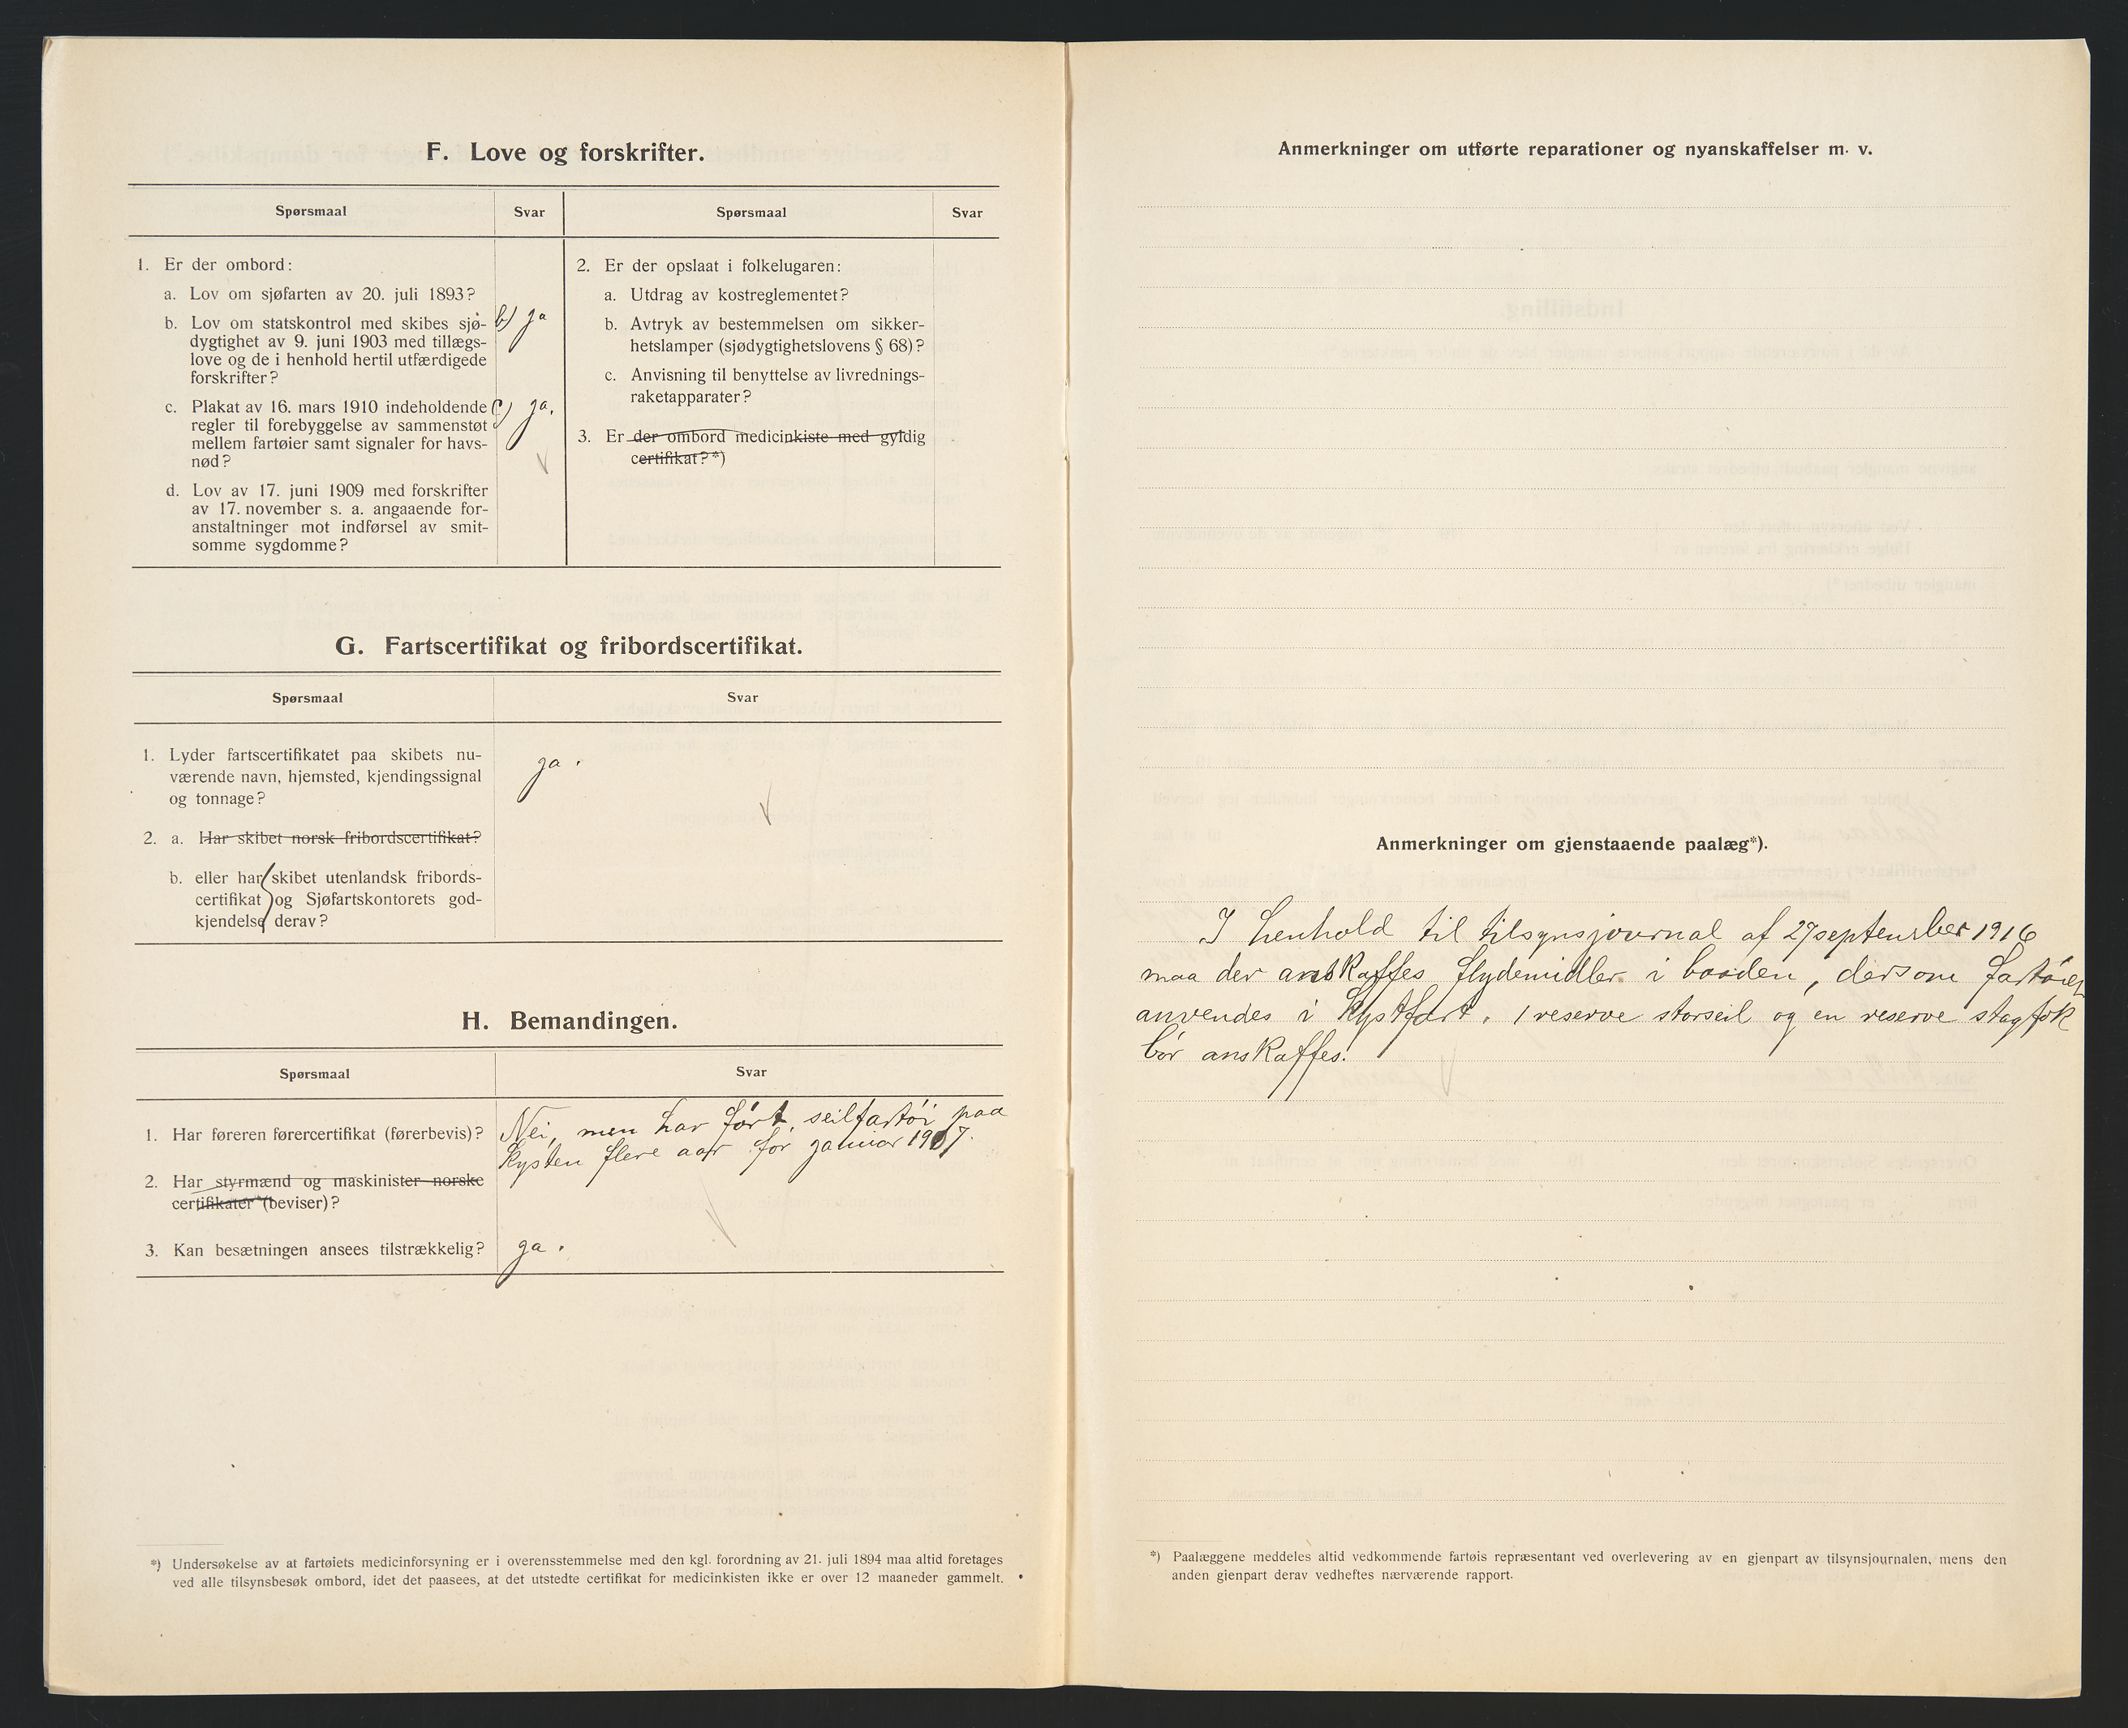 F. Love og forskrifter.
Spørsmaal
Svar
1. Er der ombord:
a. Lov om sjøfarten av 20. juli 1893?
b. Lov om statskontrol med skibes sjø-
dygtighet av 9. juni 1903 med tillægs-
love og de i henhold hertil utfærdigede
forskrifter?
b) ja
c. Plakat av 16. mars 1910 indeholdende
regler til forebyggelse av sammenstøt
mellem fartøier samt signaler for havs-
nød?
c) ja.
d. Lov av 17. juni 1909 med forskrifter
av 17. november s. a. angaaende for-
anstaltninger mot indførsel av smit-
somme sygdomme?
Spørsmaal
Svar
2. Er der opslaat i folkelugaren:
a. Utdrag av kostreglementet?
b. Avtryk av bestemmelsen om sikker-
hetslamper (sjødygtighetslovens § 68)?
c. Anvisning til benyttelse av livrednings-
raketapparater?
3. Er der ombord medicinkiste med gyldig
certifikat?*)
G. Fartscertifikat og fribordscertifikat.
Spørsmaal
Svar
1. Lyder fartscertifikatet paa skibets nu-
værende navn, hjemsted, kjendingssignal
og tonnage?
ja.
2. a. Har skibet norsk fribordscertifikat?
b. eller har skibet utenlandsk fribords-
certifikat og Sjøfartskontorets god-
kjendelse derav?
H. Bemandingen.
Spørsmaal
Svar
1. Har føreren førercertifikat (førerbevis)?
Nei, men har ført seilfartöi paa
kysten flere aar før januar 1907.
2. Har styrmænd og maskinister norske
certifikater (beviser)?
3. Kan besætningen ansees tilstrækkelig?
ja.
*) Undersøkelse av at fartøiets medicinforsyning er i overensstemmelse med den kgl. forordning av 21. juli 1894 maa altid foretages
ved alle tilsynsbesøk ombord, idet det paasees, at det utstedte certifikat for medicinkisten ikke er over 12 maaneder gammelt.
Anmerkninger om utførte reparationer og nyanskaffelser m. v.
Anmerkninger om gjenstaaende paalæg*).
I henhold til tilsynsjournal af 27 september 1916
maa der anskaffes flydemidler i baaden, dersom fartöiet
anvendes i kystfart. 1 reserve storseil og en reserve stagfok
bör anskaffes.
*) Paalæggene meddeles altid vedkommende fartøis repræsentant ved overlevering av en gjenpart av tilsynsjournalen, mens den
anden gjenpart derav vedheftes nærværende rapport.